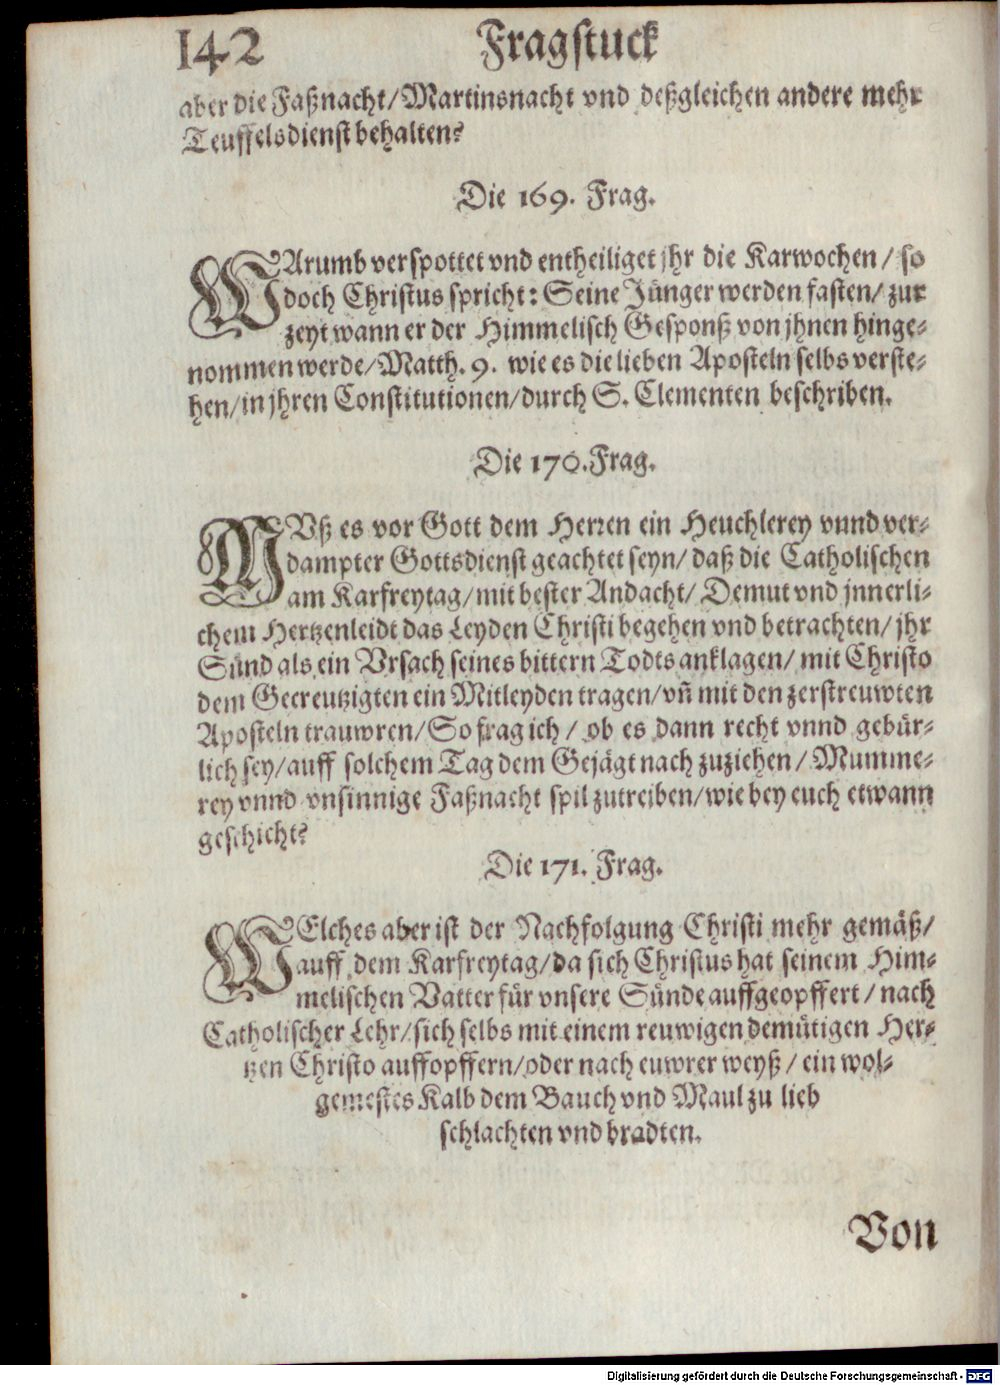 142 Fragstuck
aber die Faßnacht/Martinsnacht vnd deßgleichen andere mehr
Teuffelsdienst behalten?
Die 169. Frag.
WArumb verspottet vnd entheiliget jhr die Karwochen/ so
doch Christus spricht: Seine Jünger werden fasten/ zur
zeyt wann er der Himmelisch Gesponß von jhnen hinge-
nommen werde/Matth. 9. wie es die lieben Aposteln selbs verste-
hen/in jhren Constitutionen/durch S. Clementen beschriben.
Die 170. Frag.
MVß es vor Gott dem Herren ein Heuchlerey vnnd ver-
dampter Gottsdienst geachtet seyn/ daß die Catholischen
am Karfreytag/mit bester Andacht/ Demut vnd jnnerli-
chem Hertzenleidt das Leyden Christi begehen vnd betrachten/ jhr
Sünd als ein Vrsach seines bittern Todts anklagen/ mit Christo
dem Gecreutzigten ein Mitleyden tragen/vñ mit den zerstreuwten
Aposteln trauwren/So frag ich/ ob es dann recht vnnd gebür-
lich sey/auff solchem Tag dem Gejägt nach zuziehen/ Mumme-
rey vnnd vnsinnige Faßnacht spil zutreiben/wie bey euch etwann
geschicht?
Die 171. Frag.
WElches aber ist der Nachfolgung Christi mehr gemäß/
auff dem Karfreytag/da sich Christus hat seinem Him-
melischen Vatter für vnsere Sünde auffgeopffert/ nach
Catholischer Lehr/sich selbs mit einem reuwigen demütigen Her-
tzen Christo auffopffern/oder nach euwrer weyß/ ein wol-
gemestes Kalb dem Bauch vnd Maul zu lieb
schlachten vnd bradten.
Von
Digitalisierung gefördert durch die Deutsche Forschungsgemeinschaft - DFG